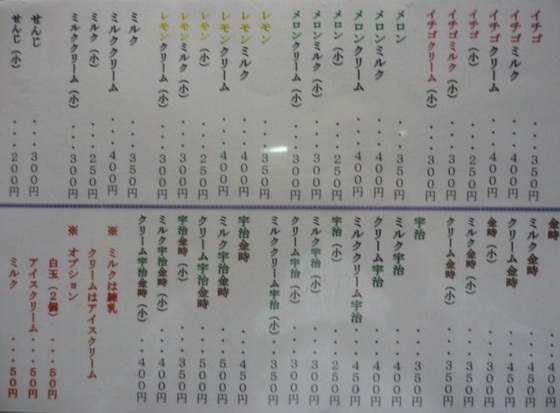 イチゴ・・・３５０円
イチゴミルク・・・４００円
イチゴクリーム・・・４００円
イチゴ（小）・・・２５０円
イチゴミルク（小）・・・３００円
イチゴクリーム（小）・・・３００円
メロン・・・３５０円
メロンミルク・・・４００円
メロンクリーム・・・４００円
メロン（小）・・・２５０円
メロンミルク（小）・・・３００円
メロンクリーム（小）・・・３００円
レモン・・・３５０円
レモンミルク・・・４００円
レモンクリーム・・・４００円
レモン（小）・・・２５０円
レモンミルク（小）・・・３００円
レモンクリーム（小）・・・３００円
ミルク・・・３５０円
ミルククリーム・・・４００円
ミルク（小）・・・２５０円
ミルククリーム（小）・・・３００円
せんじ・・・３００円
せんじ（小）・・・２００円
金時・・・４００円
ミルク金時・・・４５０円
クリーム金時・・・４５０円
金時（小）・・・３００円
ミルク金時（小）・・・３５０円
クリーム金時（小）・・・３５０円
宇治・・・３５０円
ミルク宇治・・・４００円
クリーム宇治・・・４００円
ミルククリーム宇治・・・４５０円
宇治（小）・・・２５０円
ミルク宇治（小）・・・３００円
クリーム宇治（小）・・・３００円
ミルククリーム宇治（小）・・・３５０円
宇治金時・・・４５０円
ミルク宇治金時・・・５００円
クリーム宇治金時・・・５００円
宇治金時（小）・・・３５０円
ミルク宇治金時（小）・・・４００円
クリーム宇治金時（小）・・・４００円
※ ミルクは練乳
クリームはアイスクリーム
※ オプション
白玉（２個）・・・５０円
アイスクリーム・・・５０円
ミルク・・・５０円